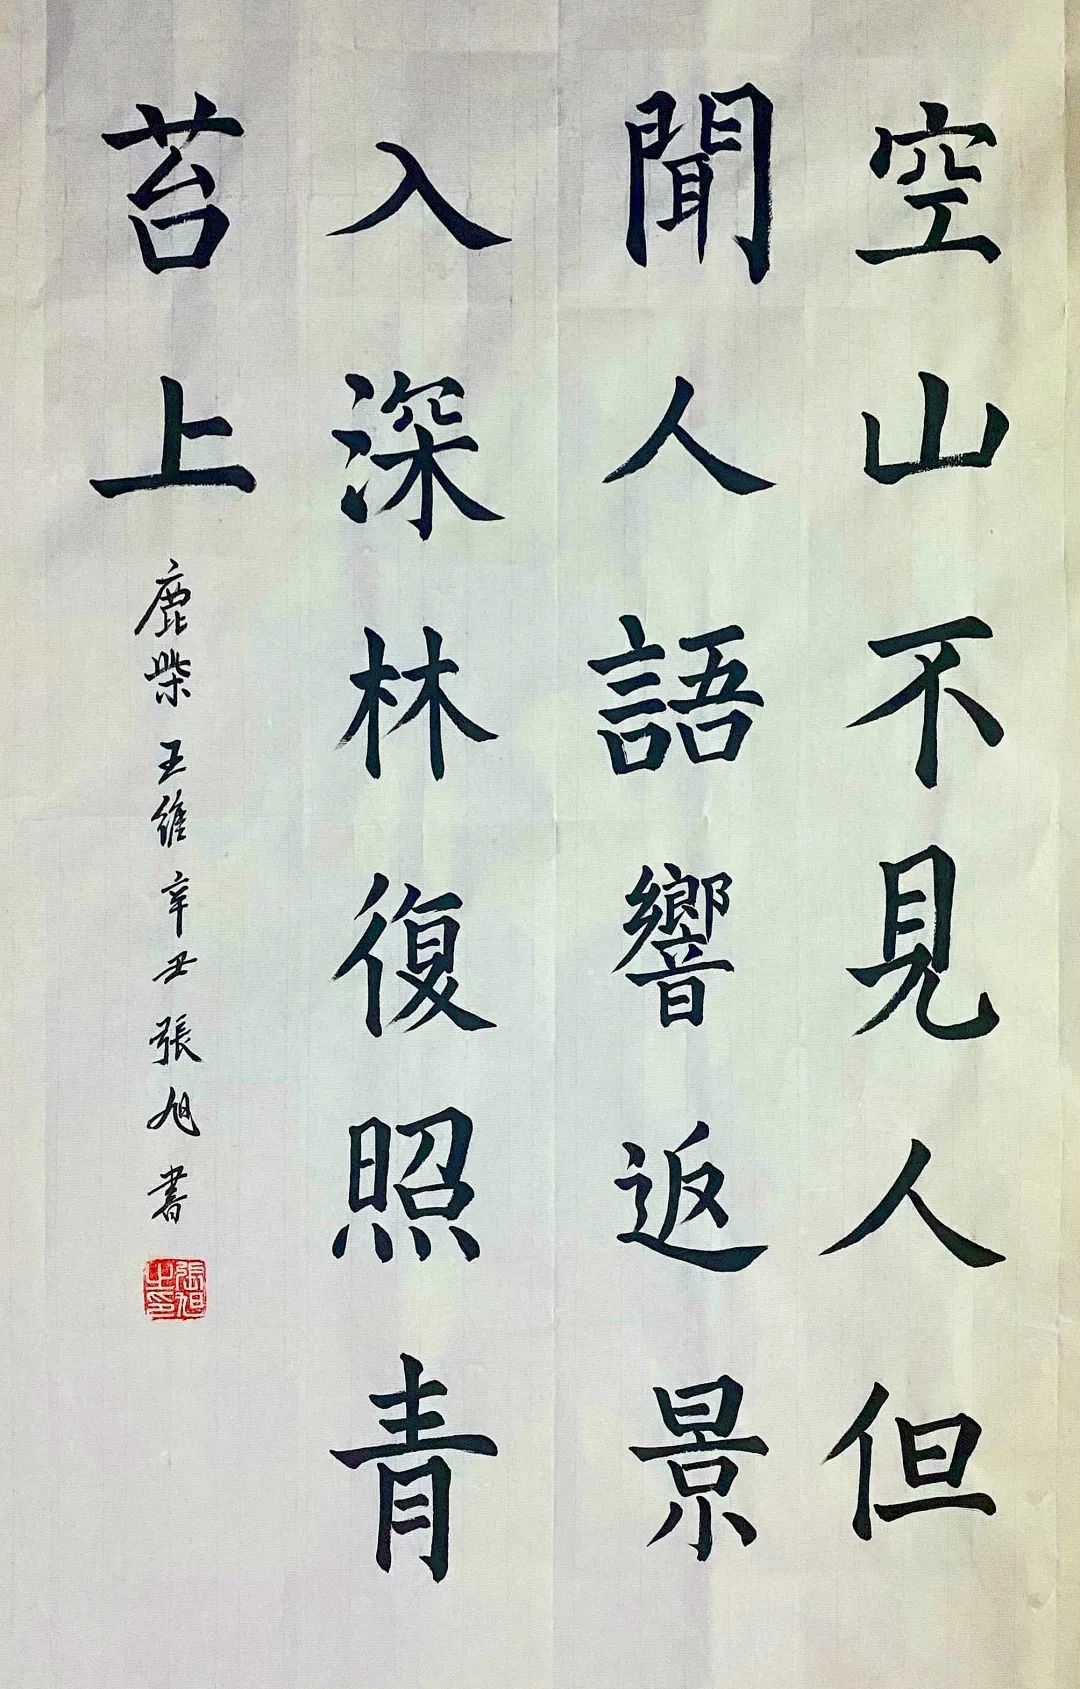 空山不見人但
聞人語響返景
入深林復照青
苔上
鹿柴 王維 辛丑 張旭 書
張旭之印